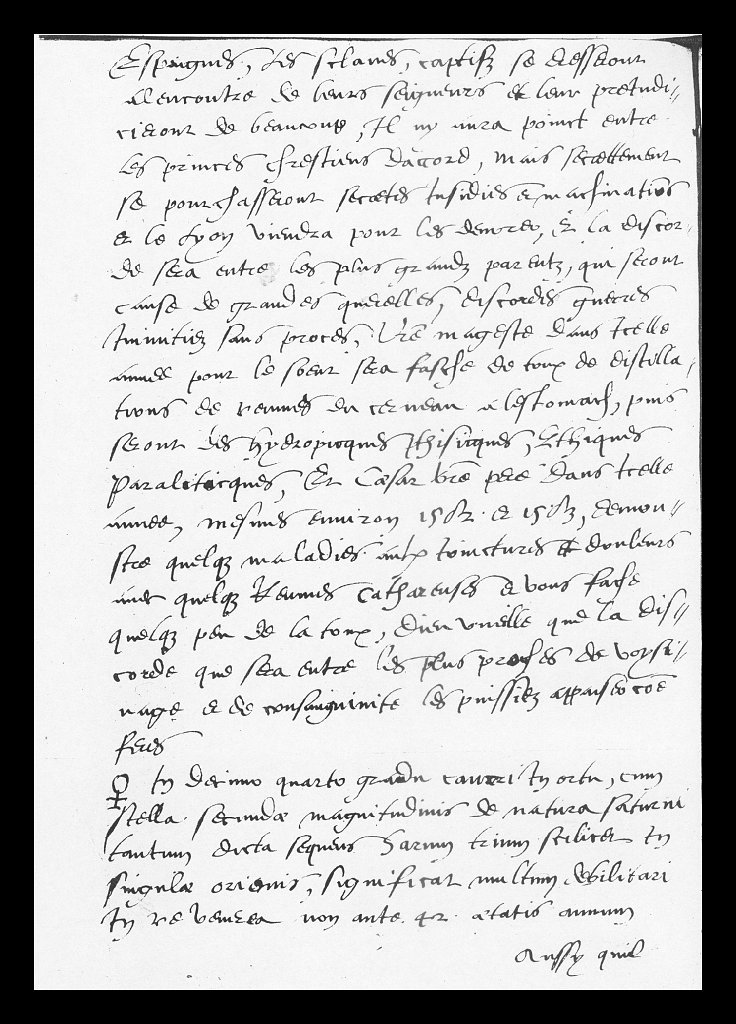 Espaignes, Les sclaves, captifz se dresseront
a lencontre de leurs seigneurs et leur preiudi//
cieront de beaucoup, Il ny aura poinct entre
les princes chrestiens daccord, mais secrettement
se pourchasseront secretes Insidies et machinatiõs
et le Lyon viendra pour les devorer, Et la discor-
de sera entre les plus grandz parentz, qui seront
cause de grandes querelles, discordes guerres
Inimitiez sans proces, Vrẽ mageste dans Icelle
annee pour le soeur sera fasche de toux de distilla-
tions de reumes du cerveau a lestomach, puis
seront des hydropicques Phisicques, Ethiques
Paraliticques, Et Cæsar vrẽ pere dans Icelle
annee, mesmes environ 1582. et 1583, demon//
stre quelqz maladies aulx Ioinctures et douleurs
avec quelqz Reumes Cathareuses et vous fache
quelqz peu de la toux, Dieu vueille que la dis//
corde que sera entre les plus proches de voysi//
nage et de consanguinite les puissiez appaiser cõẽ
feres
♀ In decimo quarto gradu cancri In ortu, cum
stella secundæ magnitudinis de natura saturni
tantum dicta sequens harum trium scilicet In
singulæ orionis, significat multum debilitari
In re venerea non ante 42. ætatis annum
Aussy quil